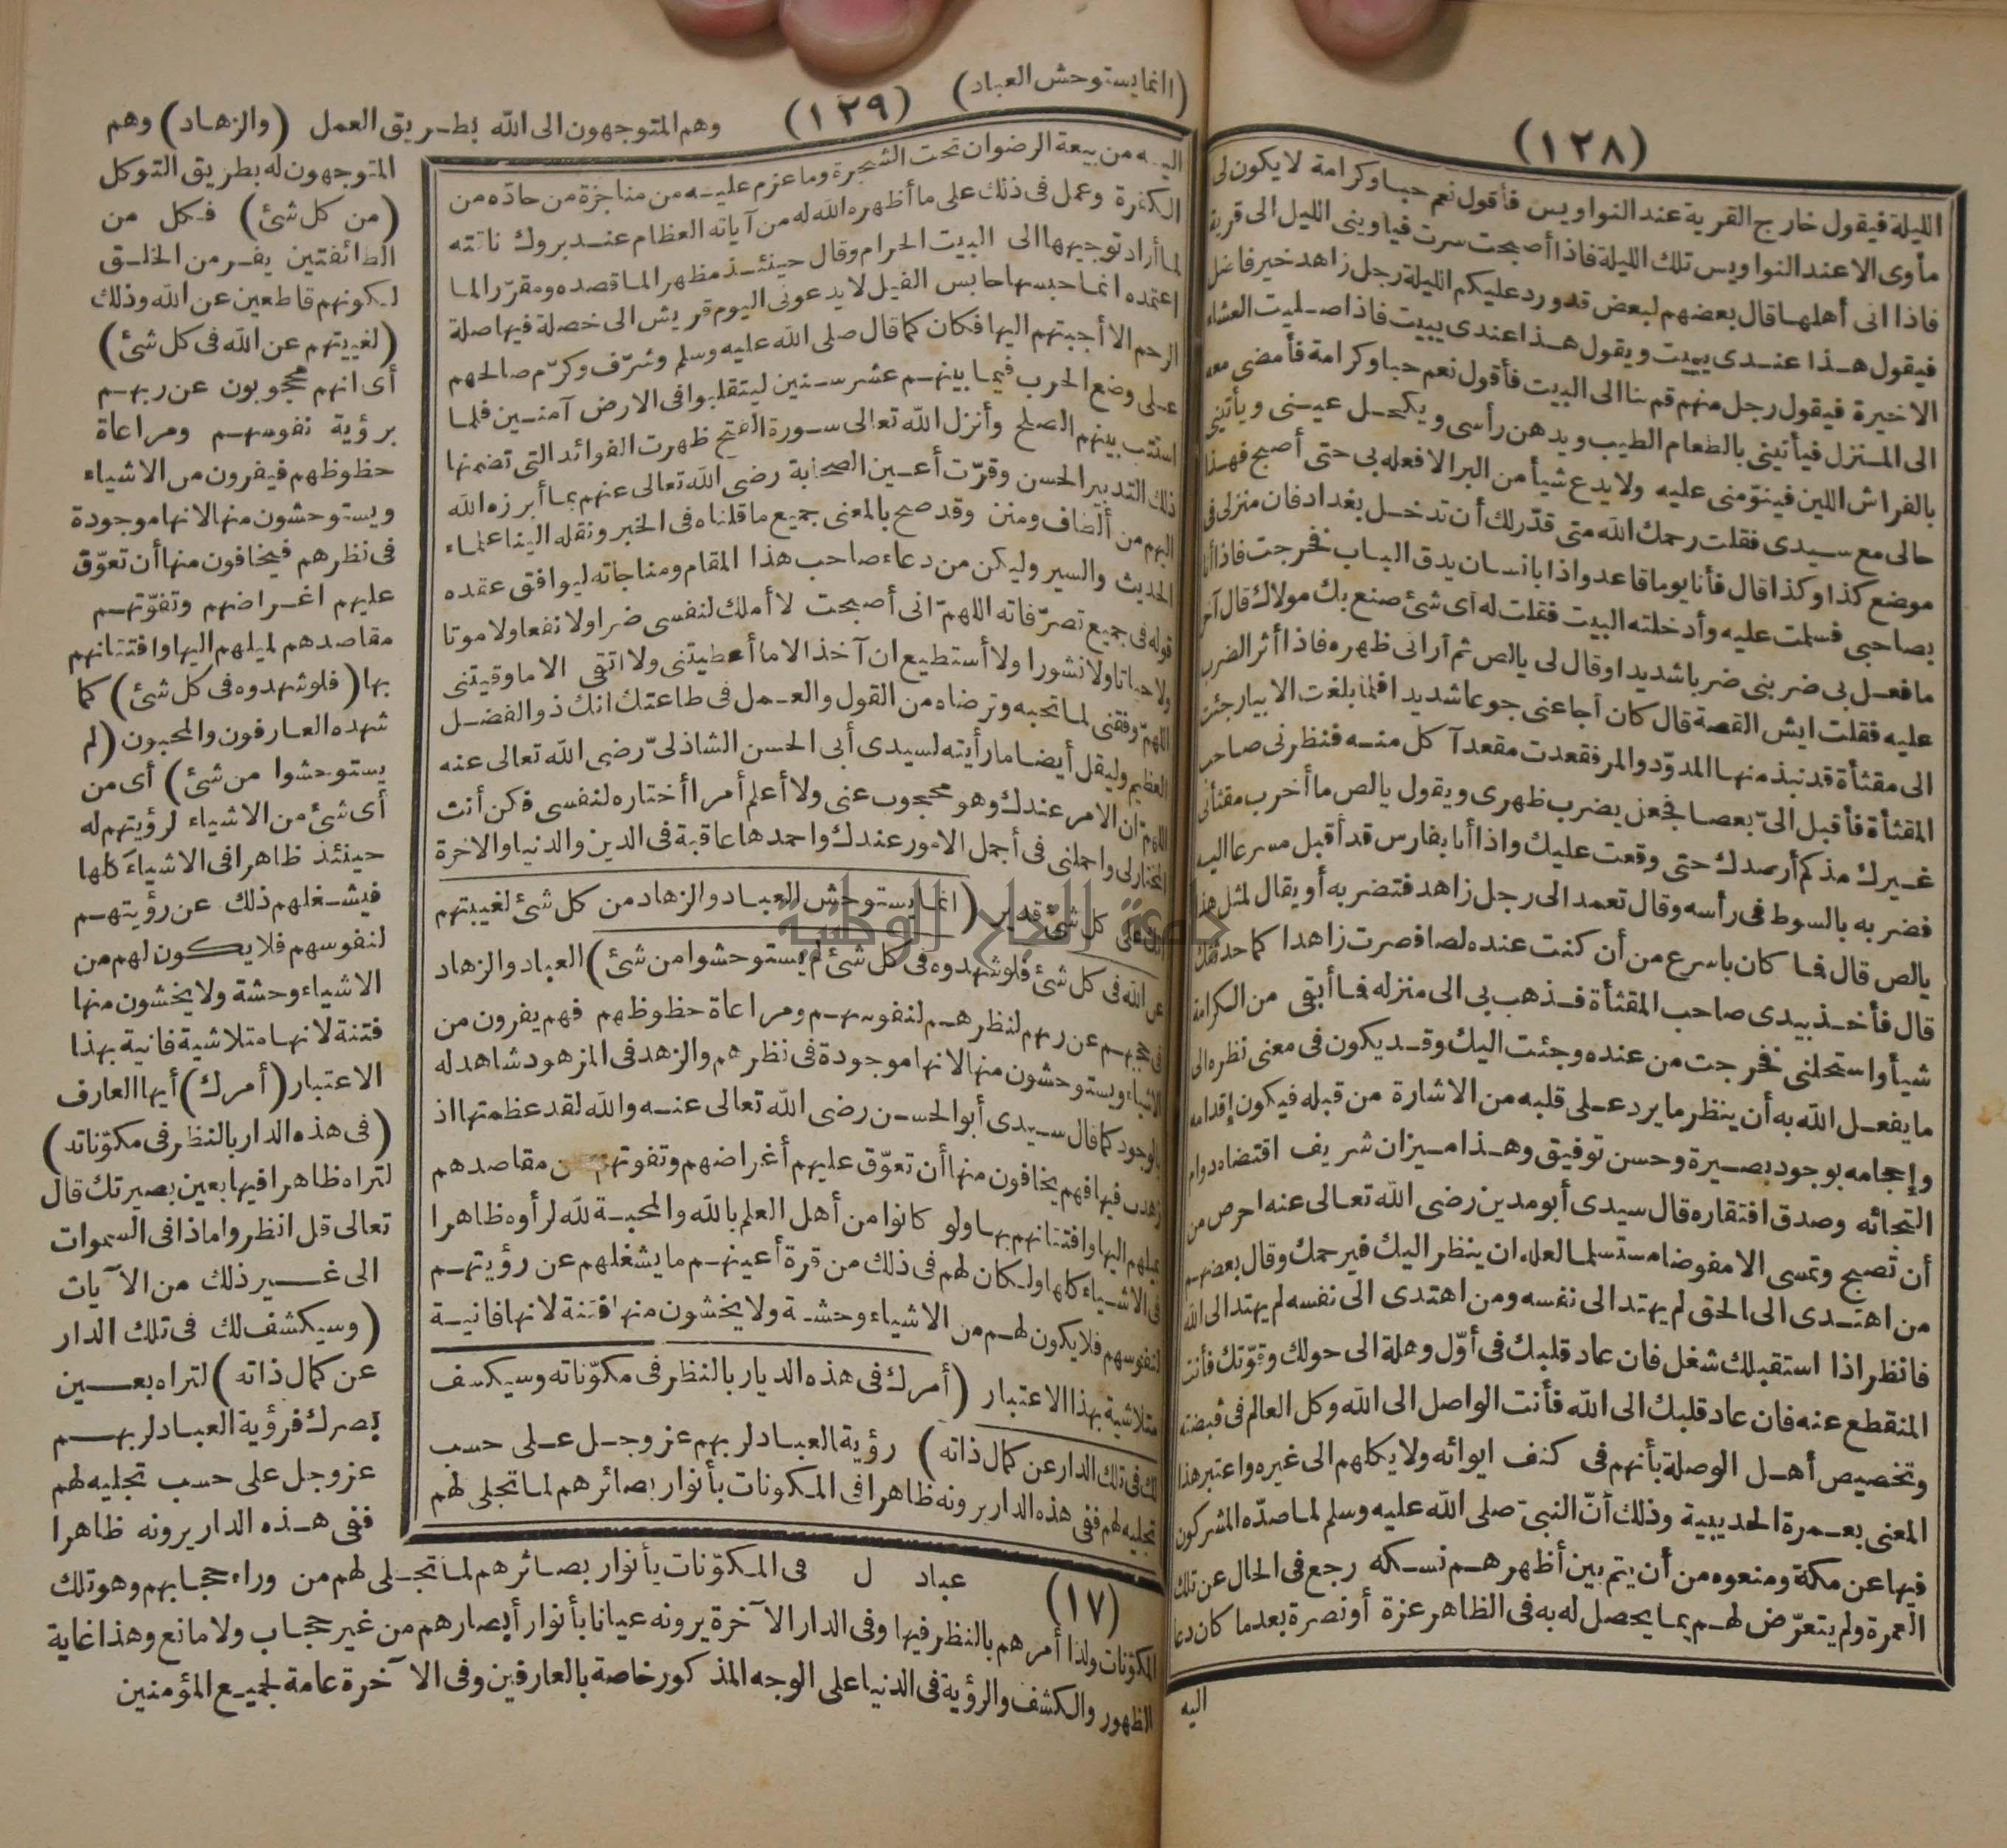 (١٢٨)
الليلة فيقول خارج القرية عند النواويس فأقول نعم حبا وكرامة لا يكون لى
مأوى الا عند النواويس تلك الليلة فاذا أصبحت سرت فيأوينى الليل الى قرية
فاذا انى أهلها قال بعضهم لبعض قد ورد عليكم الليلة رجل زاهد خير فاضل
فيقول هذا عندى يبيت ويقول هذا عندى يبيت فاذا صليت العشاء
الاخيرة فيقول رجل منهم قم بنا الى البيت فأقول نعم حبا وكرامة فأمضى معه
الى المنزل فيأتينى بالطعام الطيب ويدهن رأسى ويكحل عينى ويأتينى
بالفراش اللين فينوّمنى عليه ولا يدع شيأ من البر الا فعله بى حتى أصبح فهذا
حالى مع سيدى فقلت رحمك الله متى قدّر لك أن تدخل بغداد فان منزلى فى
موضع كذا وكذا قال فأنا يوما قاعد واذا بانسان يدق الباب فخرجت فاذا أنا
بصاحبى فسلمت عليه وأدخلته البيت فقلت له أى شئ صنع بك مولاك قال آخر
ما فعل بى ضربنى ضربا شديدا وقال لى يا لص ثم أرانى ظهره فاذا أثر الضرب
عليه فقلت ايش القصة قال كان أجاعنى جوعا شديدا فلما بلغت الا بيار جئت
الى مقثأة قد نبذ منها المدوّد والمر فقعدت مقعد آكل منه فنظرنى صاحب
المقثأة فأقبل الىّ بعصا فجعل يضرب ظهرى ويقول يا لص ما أخرب مقثأتى
غيرك مذ كم أرصدك حتى وقعت عليك واذا أنا بفارس قد أقبل مسرعا اليه
فضربه بالسوط فى رأسه وقال تعمد الى رجل زاهد فتضربه أو يقال لمثل هذا
يا لص قال فما كان باسرع من أن كنت عنده لصا فصرت زاهدا كما حدثتك
قال فأخذ بيدى صاحب المقثأة فذهب بى الى منزله فما أبقى من الكرامة
شيأ واستحلنى فخرجت من عنده وجئت اليك وقد يكون فى معنى نظره الى
ما يفعل الله به أن ينظر ما يرد على قلبه من الاشارة من قبله فيكون إقدامه
وإحجامه بوجود بصيرة وحسن توفيق وهذا ميزان شريف اقتضاه دوام
التجائه وصدق افتقاره قال سيدى أبو مدين رضى الله تعالى عنه احرص من
أن تصبح وتمسى الا مفوضا مستسلما لعله ان ينظر اليك فيرحمك وقال بعضهم
من اهتدى الى الحق لم يهتد الى نفسه ومن اهتدى الى نفسه لم يهتد الى الله
فانظر اذا استقبلك شغل فان عاد قلبك فى أوّل وهلة الى حولك وقوّتك فأنت
المنقطع عنه فان عاد قلبك الى الله فأنت الواصل الى الله وكل العالم فى قبضته
وتخصيص أهل الوصلة بأنهم فى كنف ايوائه ولا يكلهم الى غيره واعتبر هذا
المعنى بعمرة الحديبية وذلك أنّ النبىّ صلى الله عليه وسلم لما صدّه المشركون
فيها عن مكة ومنعوه من أن يتم بين أظهرهم نسكه رجع فى الحال عن تلك
العمرة ولم يتعرّض لهم بما يحصل له به فى الظاهر عزة أو نصرة بعد ما كان دعا
اليه
(انما يستوحش العباد)
(١٢٩)
اليه من بيعة الرضوان تحت الشجرة وما عزم عليه من مناجزة من حادّه من
الكفرة وعمل فى ذلك على ما أظهره الله له من آياته العظام عند بروك ناقته
لما أراد توجيهها الى البيت الحرام وقال حينئذ مظهرا لما قصده ومقرّرا لما
اعتمده انما حبسها حابس الفيل لا يدعونى اليوم قريش الى خصلة فيها صلة
الرحم الا أجبتهم اليها فكان كما قال صلى الله عليه وسلم وشرّف وكرّم صالحهم
على وضع الحرب فيما بينهم عشر سنين ليتقلبوا فى الارض آمنين فلما
استتب بينهم الصلح وأنزل الله تعالى سورة الفتح ظهرت الفوائد التى تضمنها
ذلك التدبير الحسن وقرّت أعين الصحابة رضى الله تعالى عنهم بما أبرزه الله
اليهم من ألطاف ومنن وقد صح بالمعنى جميع ما قلناه فى الخبر ونقله الينا علماء
الحديث والسير وليكن من دعاء صاحب هذا المقام ومناجاته ليوافق عقده
قوله فى جميع تصرّفاته اللهمّ انى أصبحت لا أملك لنفسى ضرا ولا نفعا ولا موتا
ولا حياتا ولا نشورا ولا أستطيع ان آخذ الا ما أعطيتنى ولا اتقى الا ما وقيتنى
اللهمّ وفقنى لما تحبه وترضاه من القول والعمل فى طاعتك انك ذو الفضل
العظيم وليقل أيضا ما رأيته لسيدى أبى الحسن الشاذلىّ رضى الله تعالى عنه
اللهمّ ان الامر عندك وهو محجوب عنى ولا أعلم أمرا أختاره لنفسى فكن أنت
المختار لى واحملنى فى أجمل الامور عندك واحمدها عاقبة فى الدين والدنيا والاخرة
انك على كل شئ قدير (انما يستوحش العباد والزهاد من كل شئ لغيبتهم
عن الله فى كل شئ فلو شهدوه فى كل شئ لم يستوحشوا من شئ) العباد والزهاد
فى حجبهم عن ربهم لنظرهم لنفوسهم ومراعاة حظوظهم فهم يفرون من
الاشياء ويستوحشون منها لانها موجودة فى نظرهم والزهد فى المزهود شاهد له
بالوجود كما قال سيدى أبو الحسن رضى الله تعالى عنه والله لقد عظمتها اذ
زهدت فيها فهم يخافون منها أن تعوّق عليهم أغراضهم وتفوتهم من مقاصدهم
لميلهم اليها وافتتانهم بها ولو كانوا من أهل العلم بالله والمحبة لله لرأوه ظاهرا
فى الاشياء كلها ولكان لهم فى ذلك من قرة أعينهم ما يشغلهم عن رؤيتهم
لنفوسهم فلا يكون لهم من الاشياء وحشة ولا يخشون منها فتنة لانها فانية
متلاشية بهذا الاعتبار (أمرك فى هذه الديار بالنظر فى مكوّناته وسيكشف
لك فى تلك الدار عن كمال ذاته) رؤية العباد لربهم عز وجل على حسب
تجليه لهم ففى هذه الدار يرونه ظاهرا فى المكونات بأنوار بصائرهم لما تجلى لهم
(١٧) عباد ل
وهم المتوجهون الى الله بطريق العمل (والزهاد) وهم
المتوجهون له بطريق التوكل
(من كل شئ) فكل من
الطائفتين يفر من الخلق
لكونهم قاطعين عن الله وذلك
(لغيبتهم عن الله فى كل شئ)
أى انهم محجوبون عن ربهم
برؤية نفوسهم ومراعاة
حظوظهم فيفرون من الاشياء
ويستوحشون منها لانها موجودة
فى نظرهم فيخافون منها أن تعوّق
عليهم اغراضهم وتفوّتهم
مقاصدهم لميلهم اليها وافتتانهم
بها (فلو شهدوه فى كل شئ) كما
شهده العارفون والمحبون (لم
يستوحشوا من شئ) أى من
أى شئ من الاشياء لرؤيتهم له
حينئذ ظاهرا فى الاشياء كلها
فيشغلهم ذلك عن رؤيتهم
لنفوسهم فلا يكون لهم من
الاشياء وحشة ولا يخشون منها
فتنة لانها متلاشية فانية بهذا
الاعتبار (أمرك) أيها العارف
(فى هذه الدار بالنظر فى مكوّناته)
لتراه ظاهرا فيها بعين بصيرتك قال
تعالى قل انظروا ماذا فى السموات
الى غير ذلك من الآيات
(وسيكشف لك فى تلك الدار
عن كمال ذاته) لتراه بعين
بصرك فرؤية العباد لربهم
عز وجل على حسب تجليه لهم
ففى هذه الدار يرونه ظاهرا
فى المكوّنات بأنوار بصائرهم لما تجلى لهم من وراء حجابهم وهو تلك
المكوّنات ولذا أمرهم بالنظر فيها وفى الدار الآخرة يرونه عيانا بأنوار أبصارهم من غير حجاب ولا مانع وهذا غاية
الظهور والكشف والرؤية فى الدنيا على الوجه المذكور خاصة بالعارفين وفى الآخرة عامة لجميع المؤمنين
جامعة النجاح الوطنية